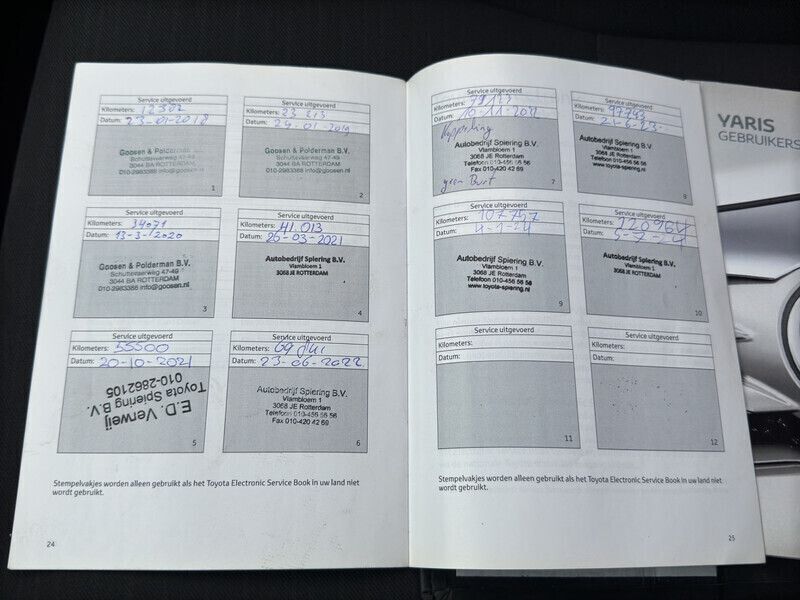 Service uitgevoerd
Kilometers: 12302
Datum: 23-01-2018
Goosen & Polderman B.V.
Schuttevaerweg 47-49
3044 BA ROTTERDAM
010-2983388 info@goosen.nl
1
Service uitgevoerd
Kilometers: 23 213
Datum: 24-01-2019
Goosen & Polderman B.V.
Schuttevaerweg 47-49
3044 BA ROTTERDAM
010-2983388 info@goosen.nl
2
Service uitgevoerd
Kilometers: 34071
Datum: 13-3-2020
Goosen & Polderman B.V.
Schuttevaerweg 47-49
3044 BA ROTTERDAM
010-2983388 info@goosen.nl
3
Service uitgevoerd
Kilometers: 41.013
Datum: 26-03-2021
Autobedrijf Spiering B.V.
Vlambloem 1
3068 JE ROTTERDAM
4
Service uitgevoerd
Kilometers: 55500
Datum: 20-10-2021
E.D. Verweij
Toyota Spiering B.V.
010-2862105
5
Service uitgevoerd
Kilometers: 69
Datum: 23-06-2022
Autobedrijf Spiering B.V.
Vlambloem 1
3068 JE Rotterdam
Telefoon 010-456 56 56
Fax 010-420 42 69
6
Stempelvakjes worden alleen gebruikt als het Toyota Electronic Service Book in uw land niet
wordt gebruikt.
24
Service uitgevoerd
Kilometers:
Datum: 10-11-202
Koppeling
Autobedrijf Spiering B.V.
Vlambloem 1
3068 JE Rotterdam
Telefoon 010-456 56 56
Fax 010-420 42 69
geen Burt
7
Service uitgevoerd
Kilometers: 97793
Datum: 2-6-23
Autobedrijf Spiering B.V.
Vlambloem 1
3068 JE Rotterdam
Telefoon 010-456 56 56
www.toyota-spiering.nl
8
Service uitgevoerd
Kilometers: 107757
Datum: 4-1-24
Autobedrijf Spiering B.V.
Vlambloem 1
3068 JE Rotterdam
Telefoon 010-456 56 56
www.toyota-spiering.nl
9
Service uitgevoerd
Kilometers: 120964
Datum: 5-7-24
Autobedrijf Spiering B.V.
Vlambloem 1
3068 JE ROTTERDAM
10
Service uitgevoerd
Kilometers:
Datum:
11
Service uitgevoerd
Kilometers:
Datum:
12
Stempelvakjes worden alleen gebruikt als het Toyota Electronic Service Book in uw land niet
wordt gebruikt.
25
YARIS
GEBRUIKERS